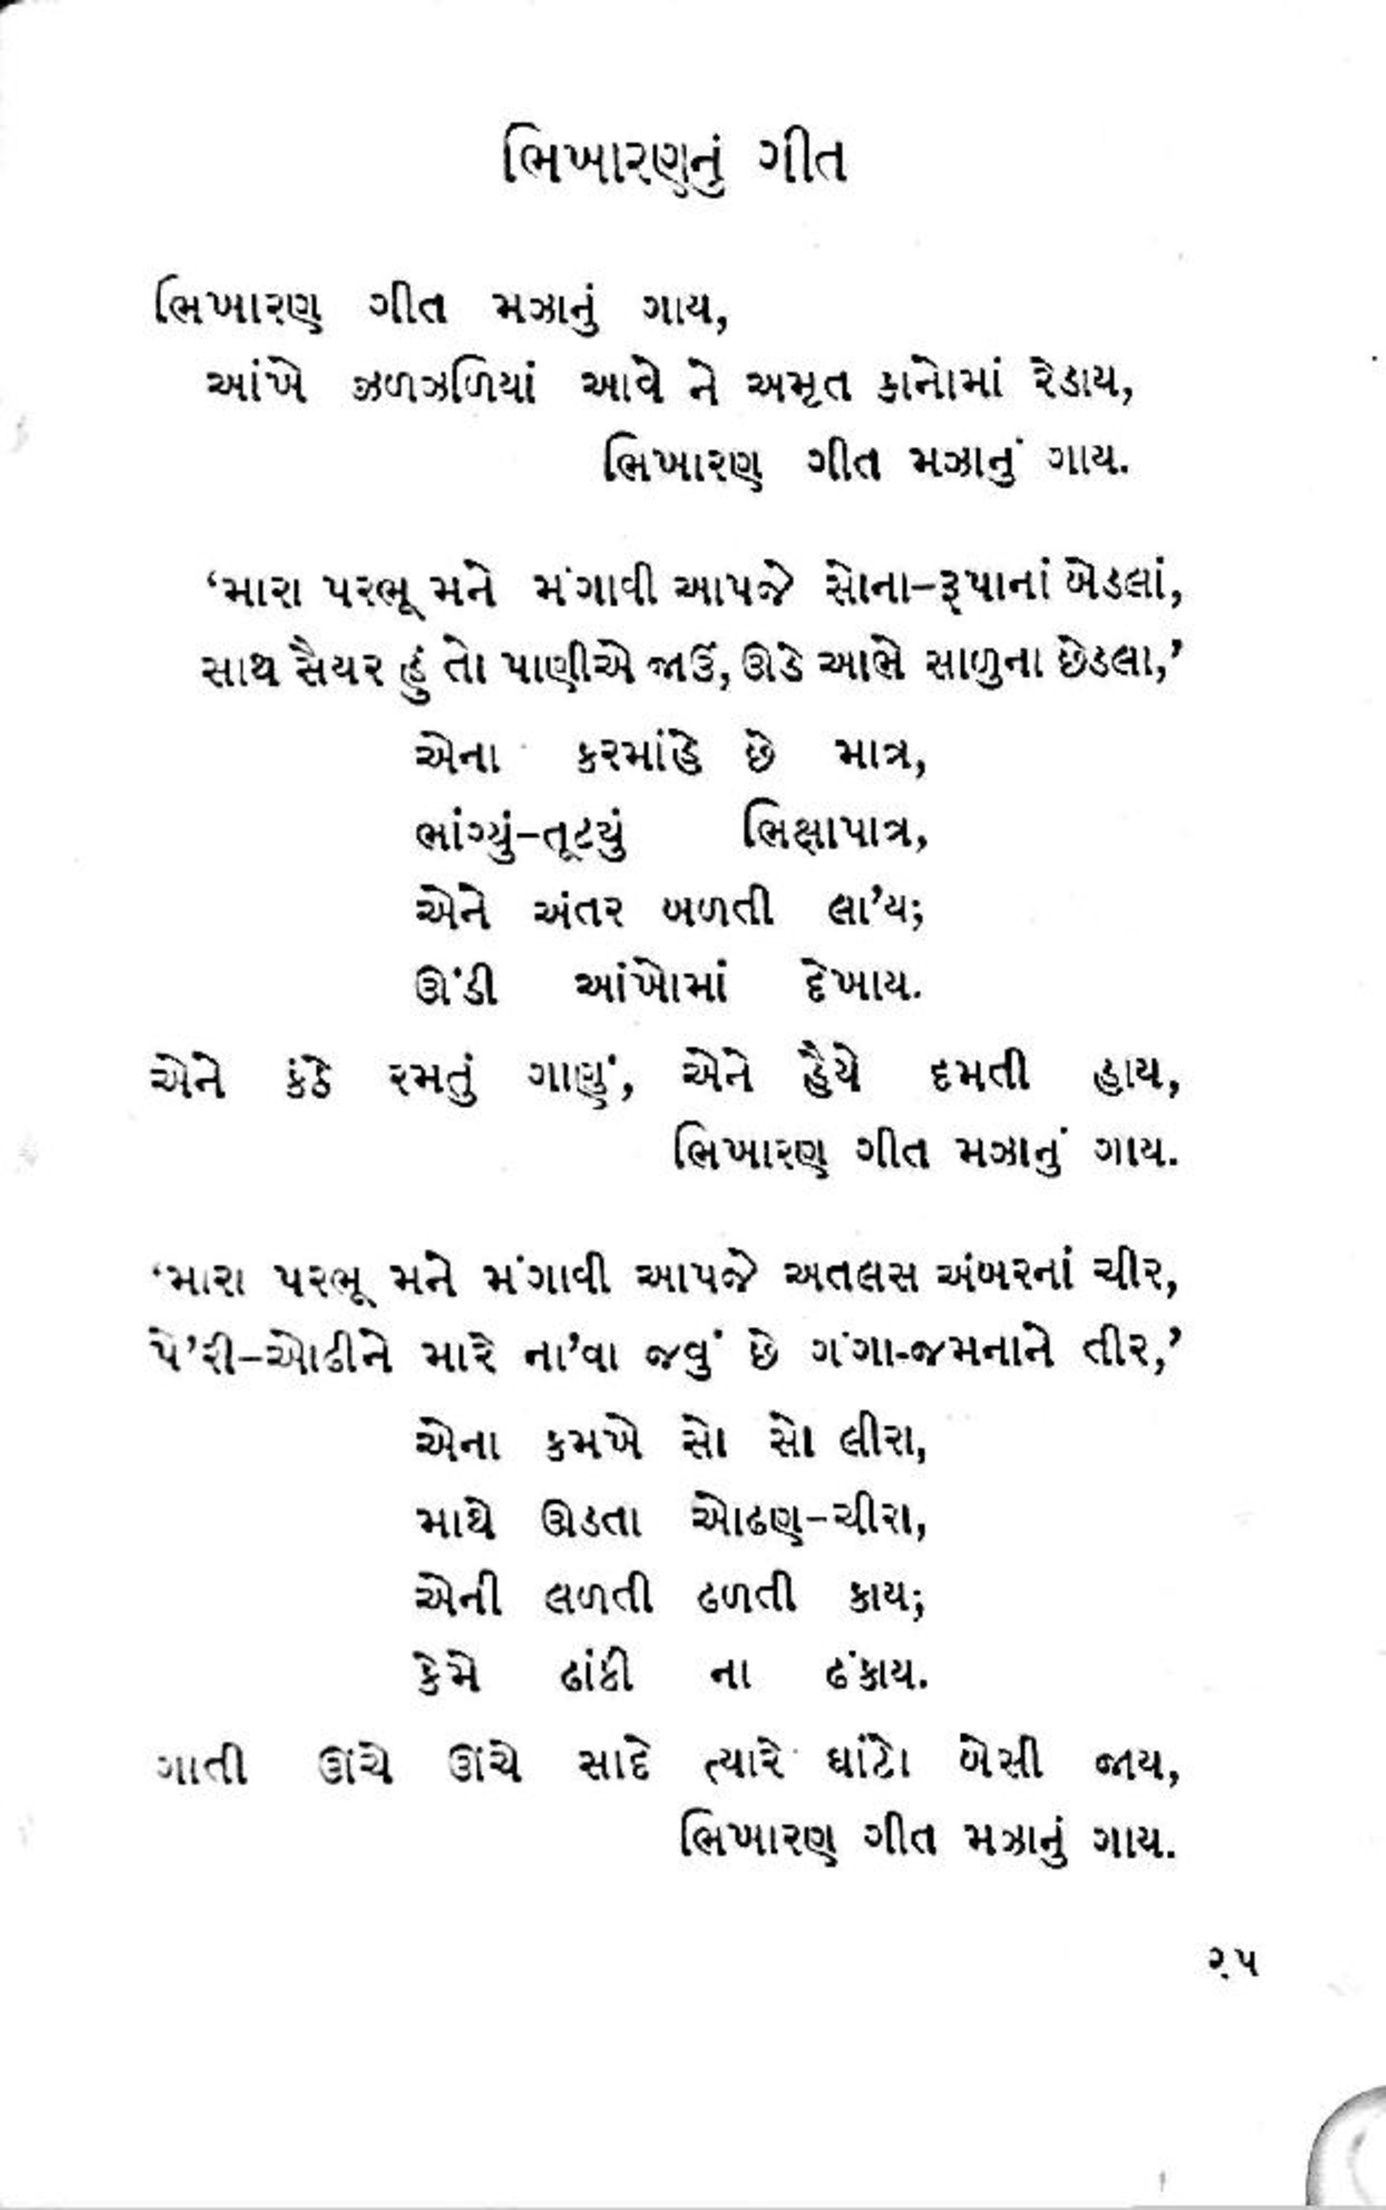 ભિખારણનું ગીત
ભિખારણ ગીત મઝાનું ગાય,
આંખે ઝળઝળિયાં આવે ને અમૃત કાનોમાં રેડાય,
ભિખારણ ગીત મઝાનું ગાય.
‘મારા પરભૂ મને મંગાવી આપજે સોના–રૂપાનાં બેડલાં,
સાથ સૈયર હું તો પાણીએ જાઉં, ઊડે આભે સાળુના છેડલા,’
એના કરમાંહે છે માત્ર,
ભાંગ્યું–તૂટ્યું ભિક્ષાપાત્ર,
એને અંતર બળતી લા’ય;
ઊંડી આંખોમાં દેખાય.
એને કંઠે રમતું ગાણું, એને હૈયે દમતી હાય,
ભિખારણ ગીત મઝાનું ગાય.
‘મારા પરભૂ મને મંગાવી આપજે અતલસ અંબરનાં ચીર,
પે’રી–ઓઢીને મારે ના’વા જવું છે ગંગા-જમનાને તીર,’
એના કમખે સો સો લીરા,
માથે ઊડતા ઓઢણ–ચીરા,
એની લળતી ઢળતી કાય;
કેમે ઢાંકી ના ઢંકાય.
ગાતી ઊંચે ઊંચે સાદે ત્યારે ઘાંટો બેસી જાય,
ભિખારણ ગીત મઝાનું ગાય.
૨૫